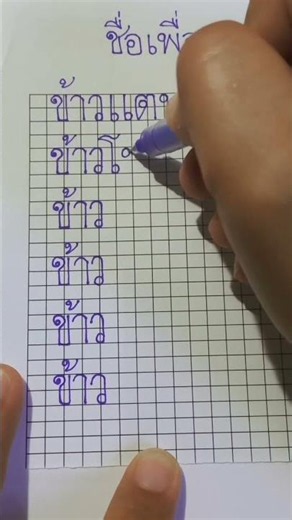 ชื่อเพื่
ข้าวแต
ข้าวโ
ข้าว
ข้าว
ข้าว
ข้าว